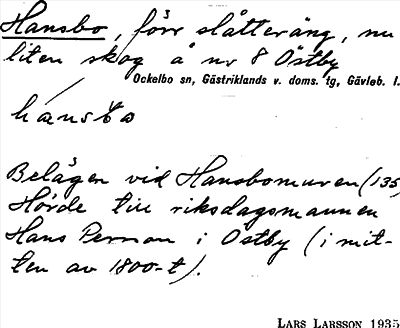 Hansbo, förr slåtteräng, nu
liten skog å nr 8 Östby
Ockelbo sn, Gästriklands v. doms. tg, Gävleb. l.
hánsbo
Belägen vid Hansbomuren (135)
Hörde till riksdagsmannen
Hans Persson i Östby (i mit-
ten av 1800-t).
LARS LARSSON 1935